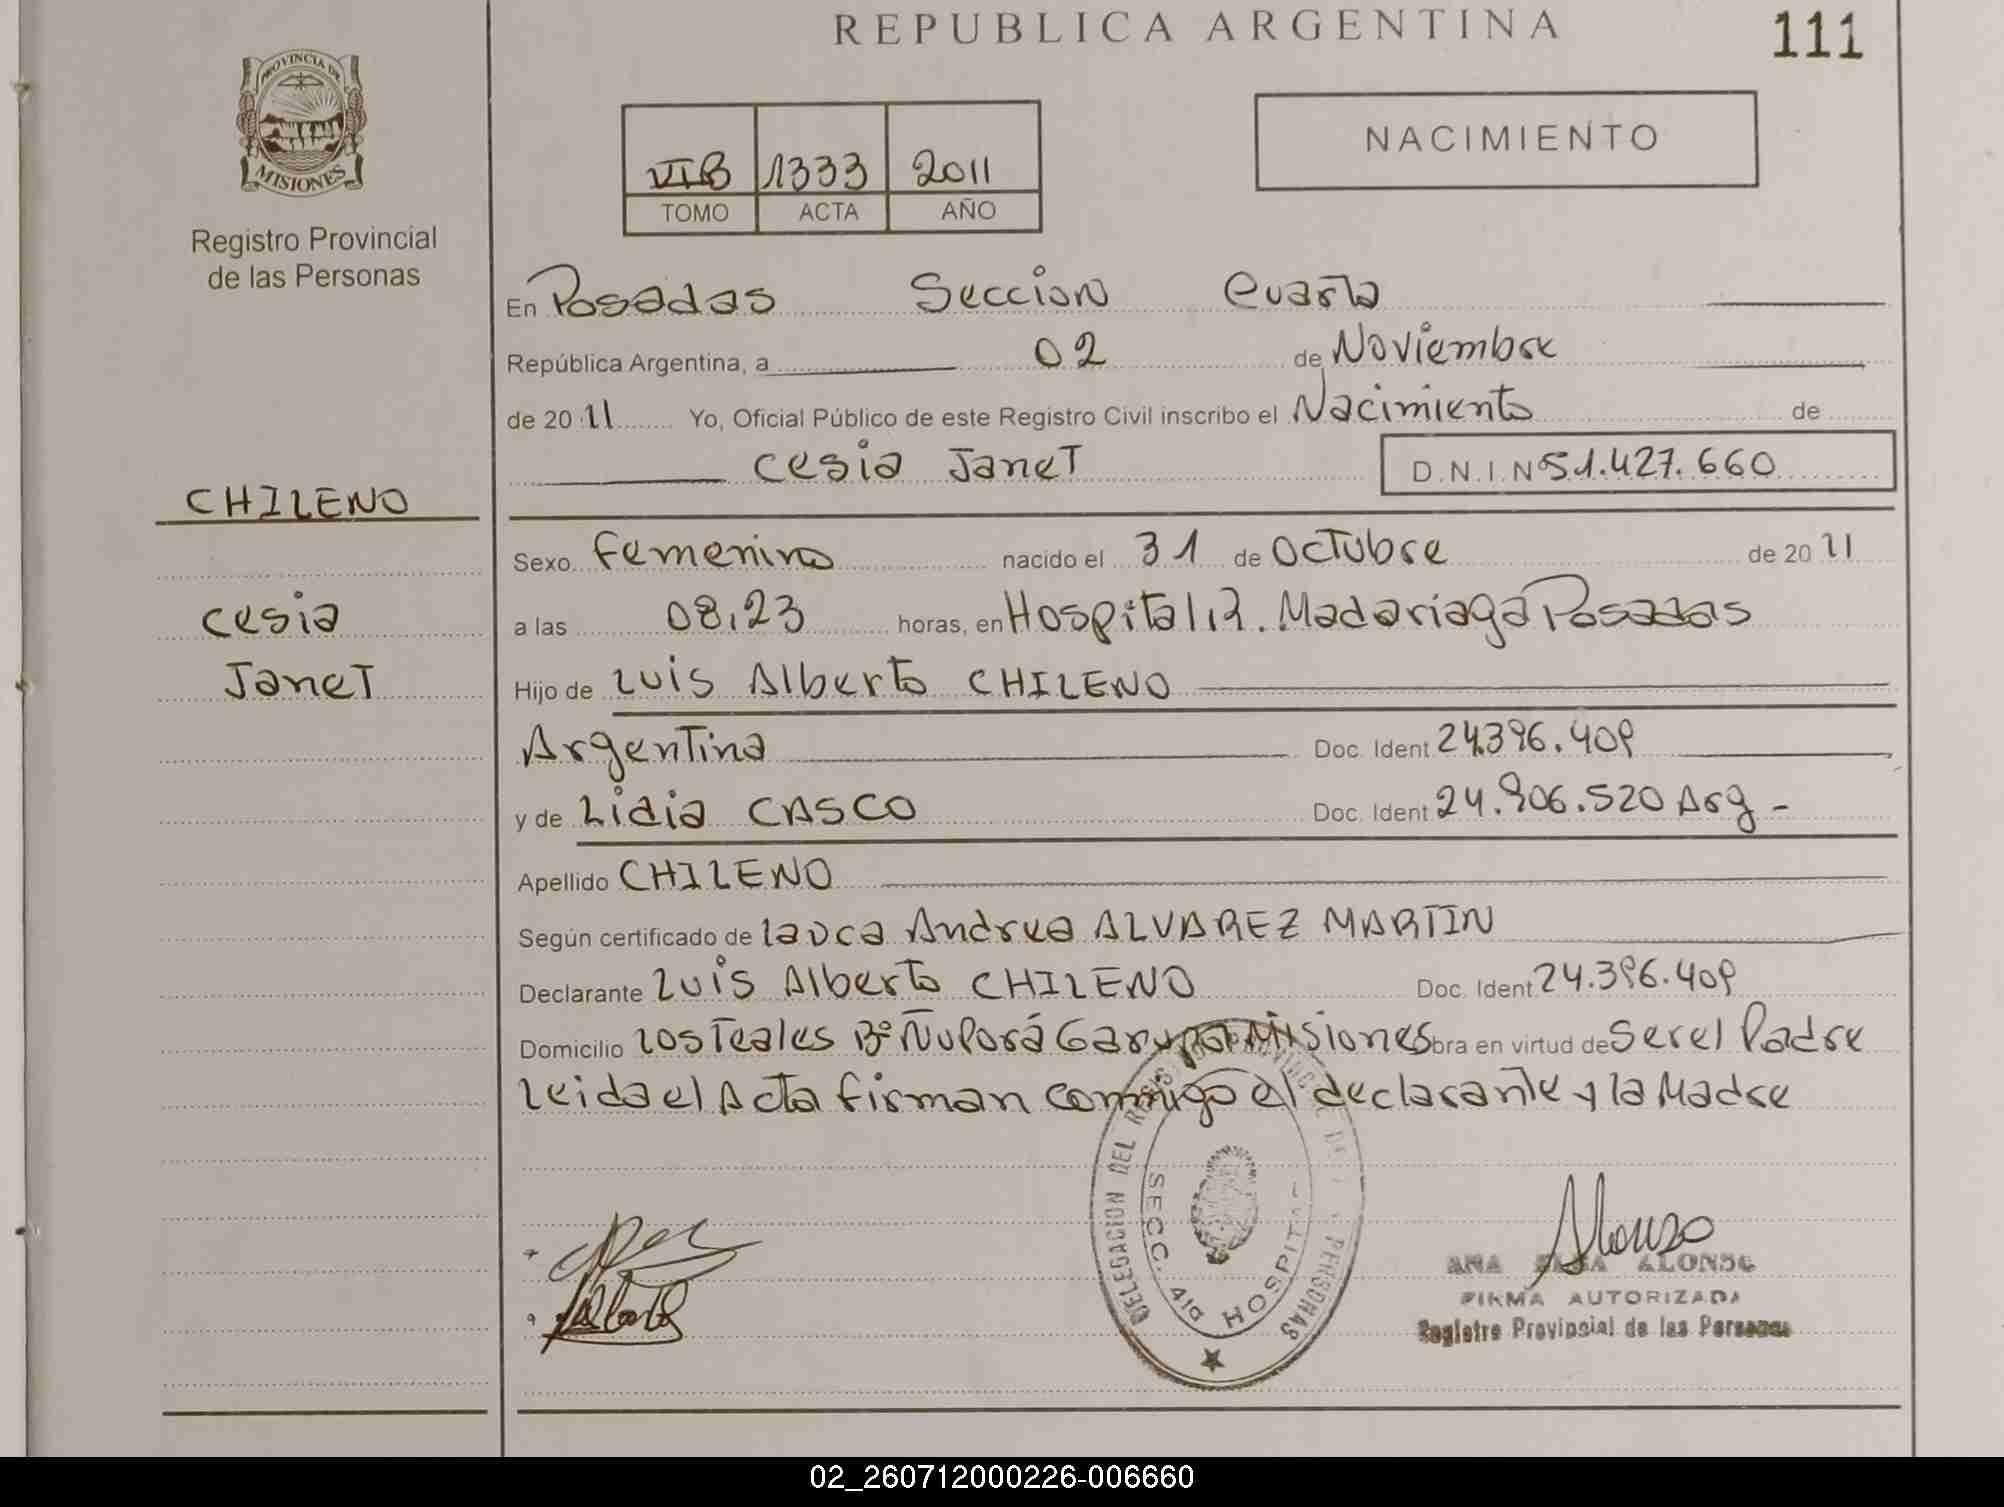 REPUBLICA ARGENTINA
111
PROVINCIA DE
MISIONES
Registro Provincial
de las Personas
VIB 1333 2011
TOMO ACTA AÑO
NACIMIENTO
En Posadas Seccion Cuarta
República Argentina, a 02 de Noviembre
de 2011 Yo, Oficial Público de este Registro Civil inscribo el Nacimiento de
Cesia Janet D.N.I.Nº 51.427.660
CHILENO
Cesia
Janet
Sexo Femenino nacido el 31 de Octubre de 2011
a las 08,23 horas, en Hospital R. Madariaga Posadas
Hijo de Luis Alberto CHILENO
Argentina Doc. Ident 24.396.409
y de Lidia CASCO Doc. Ident 24.906.520 Arg -
Apellido CHILENO
Según certificado de Laura Andrea ALVAREZ MARTIN
Declarante Luis Alberto CHILENO Doc. Ident 24.396.409
Domicilio Los Teales Bº Ñu Porá Garupa Misiones bra en virtud de Ser el Padre
Leida el Acta firman conmigo el declarante y la Madre
DELEGACION DEL PERSONAS
SECC. 4ta HOSPITAL
Alonso
ANA ALONSO
FIRMA AUTORIZADA
Registro Provincial de las Personas
02_260712000226-006660